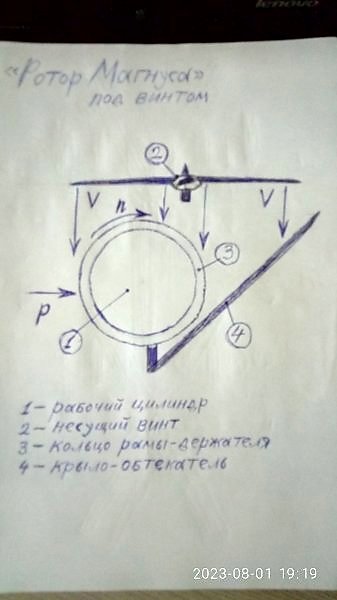 lenovo
«Ротор Магнуса»
под винтом
2
V n V
3
P
1
4
1 – рабочий цилиндр
2 – несущий винт
3 – кольцо рамы-держателя
4 – крыло-обтекатель
2023-08-01 19:19